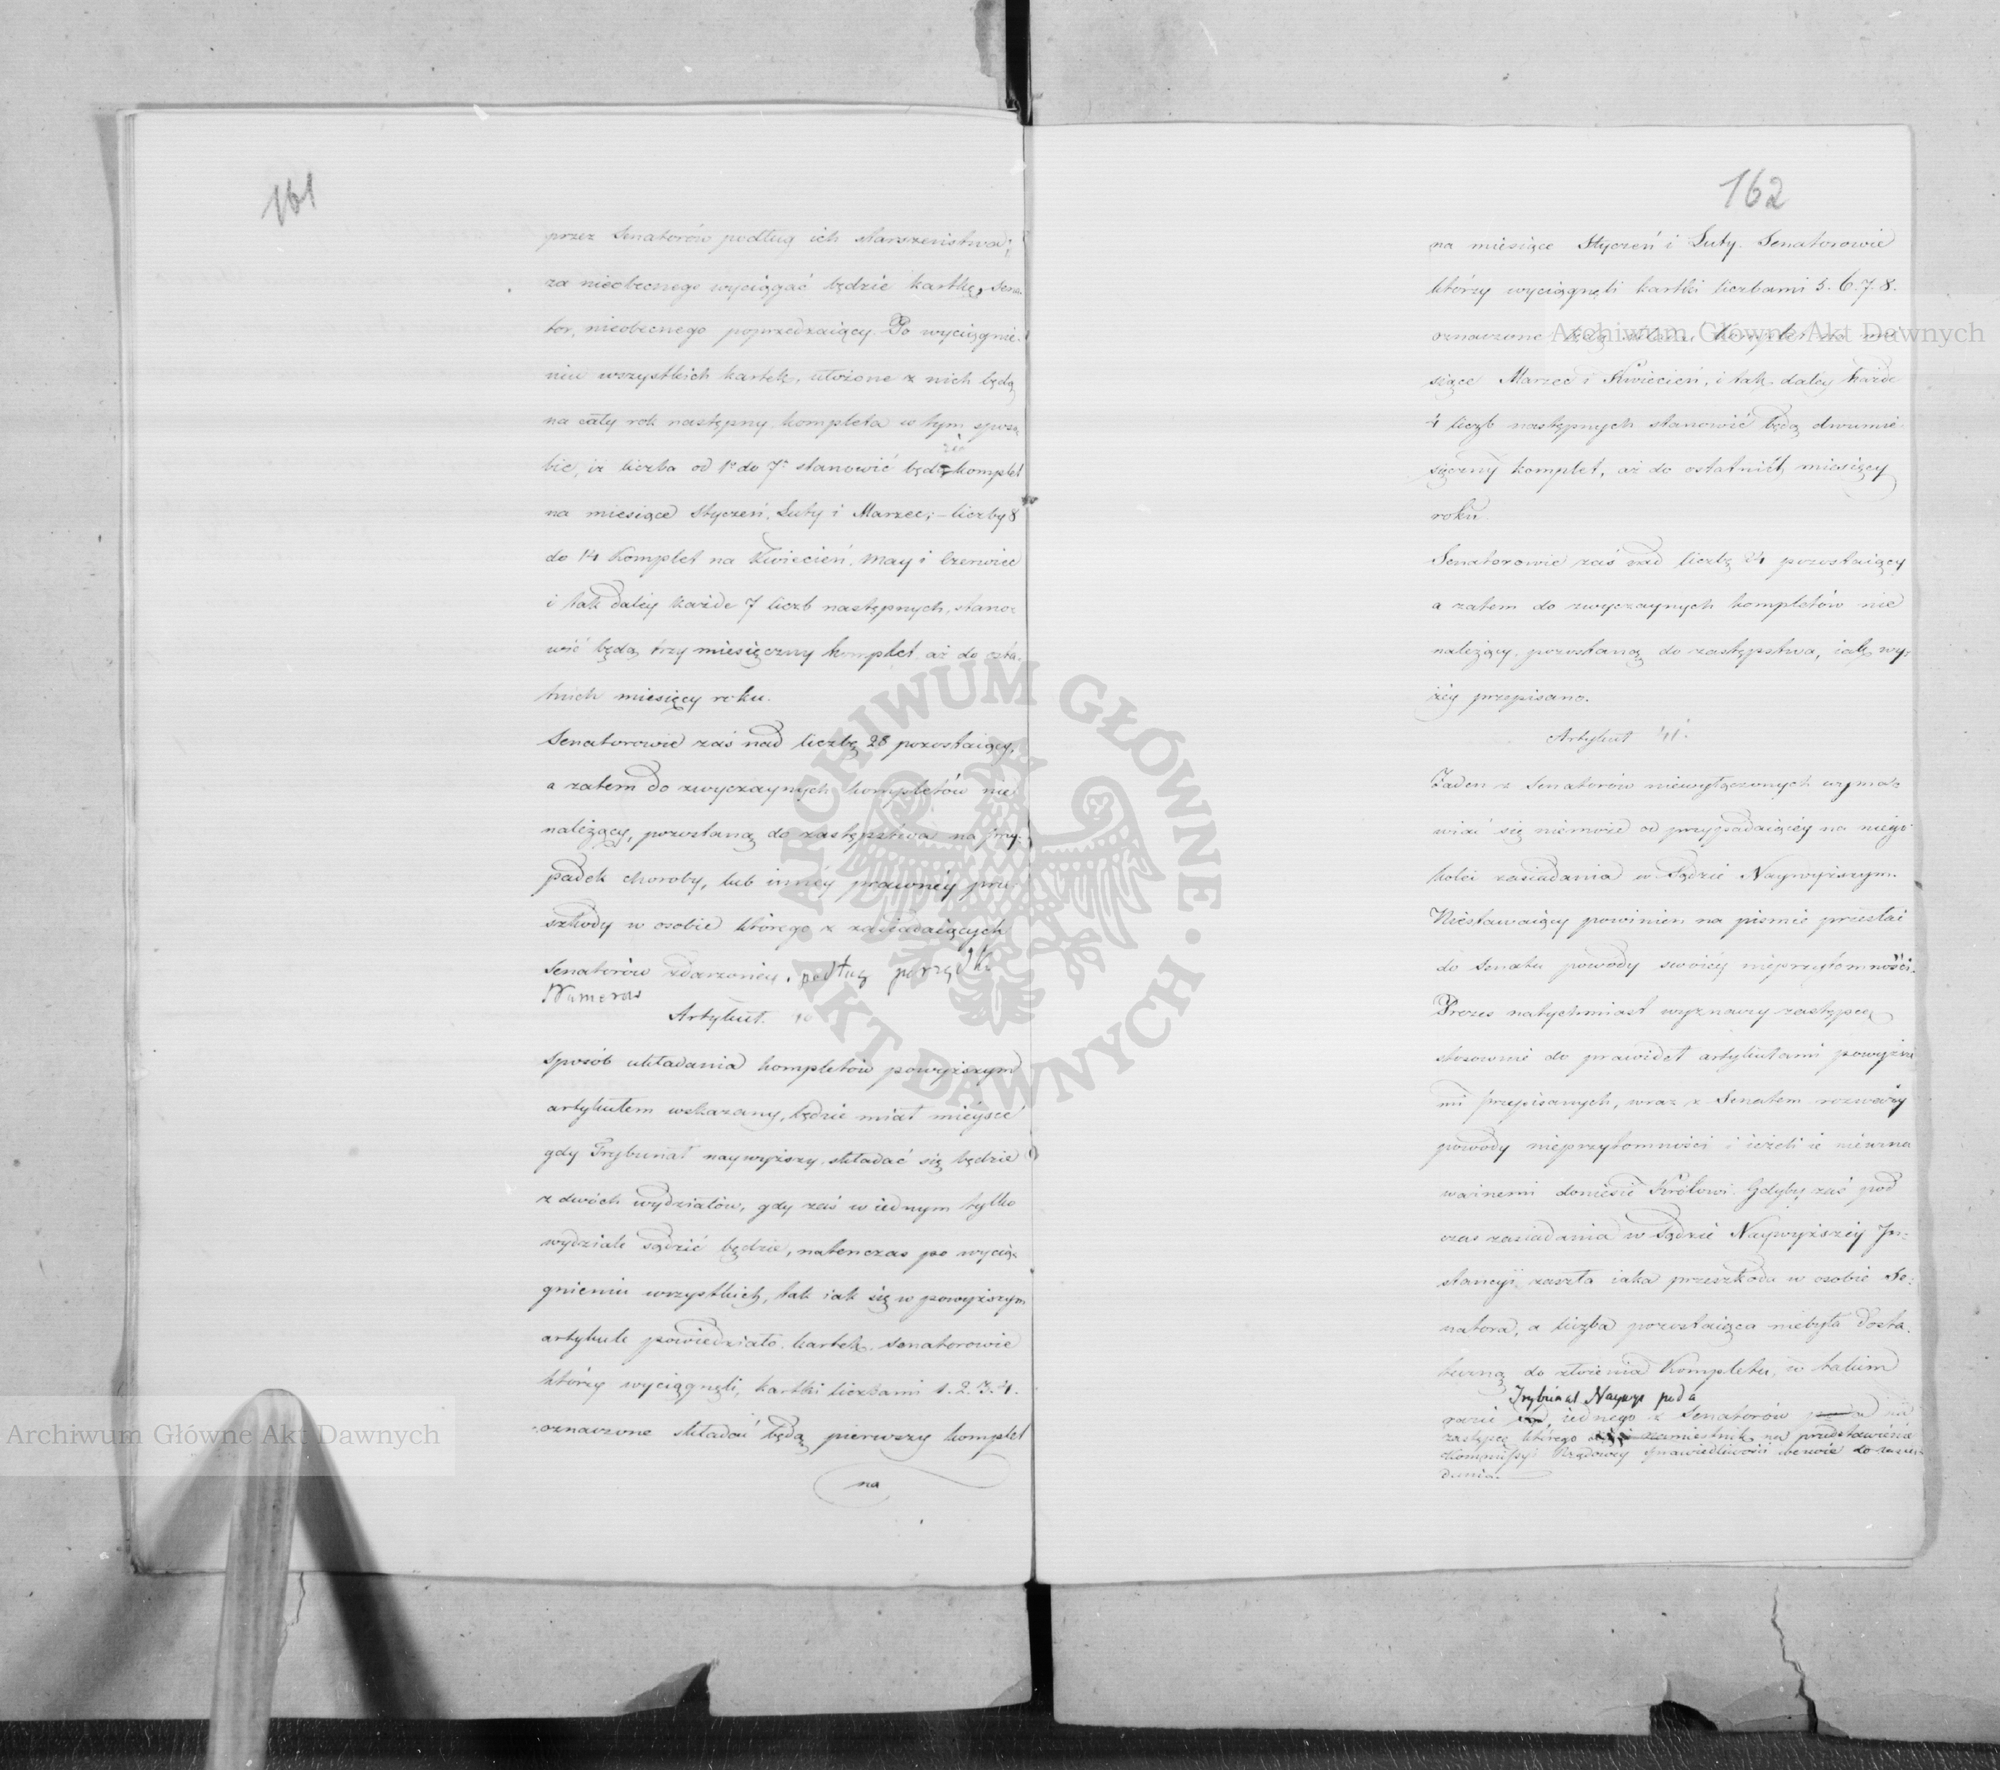 161
przez Senatorów podług ich starszeństwa;
za nieobecnego wyciągać będzie kartkę, Sena-
tor, nieobecnego poprzedzaiący. Po wyciągnie-
niu wszystkich kartek, ułożone z nich będą
na cały rok następny kompleta w tym sposo-
bie, iż liczba od 1o do 7o stanowić będzie komplet
na miesiące Styczeń, Luty i Marzec; - liczby 8
do 14 Komplet na Kwiecień, May i Czerwiec
i tak daley każde 7 liczb następnych, stano-
wić będą trzy miesięczny komplet aż do osta-
tnich miesięcy roku.
Senatorowie zaś nad liczbę 28 pozostaiący,
a zatem do zwyczaynych kompletów nie
należący, pozostaną do zastępstwa na przy-
padek choroby, lub inney prawney prze-
szkody w osobie którego z zasiadaiących
Senatorów zdarzoney, podług porządku
Numerów
Artykuł. 10
Sposób układania kompletów powyższym
artykułem wskazany, będzie miał mieysce
gdy Trybunał naywyższy, składać się będzie
z dwóch wydziałów, gdy zaś w iednym tylko
wydziale sądzić będzie, natenczas po wycią-
gnieniu wszystkich, tak iak się w powyższym
artykule powiedziało, kartek, Senatorowie
którzy wyciągnęli, kartki liczbami 1. 2. 3. 4.
oznaczone składać będą pierwszy komplet
na
162
na miesiące Styczeń i Luty. Senatorowie
którzy wyciągnęli kartki liczbami 5. 6. 7. 8.
oznaczone będą składać Komplet na mie-
siące Marzec i Kwiecień, i tak daley każde
4 liczb następnych stanowić będą dwumie-
sięczny komplet, aż do ostatnich miesięcy
roku.
Senatorowie zaś nad liczbę 24 pozostaiący
a zatem do zwyczaynych kompletów nie
należący, pozostaną do zastępstwa, iak wy-
żey przepisano.
Artykuł 11.
Żaden z Senatorów niewyłączonych wyma-
wiać się niemoże od przypadaiącey na niego
kolei zasiadania w Sądzie Naywyższym.
Niestawaiący powinien na piśmie przesłać
do Senatu powody swoiey nieprzytomności.
Prezes natychmiast wyznaczy zastępcę
stosownie do prawideł artykułami powyższe-
mi przepisanych, wraz z Senatem rozważy
powody nieprzytomności i ieżeli ie nieuzna
ważnemi doniesie Królowi. Gdyby zaś pod
czas zasiadania w Sądzie Naywyższey In-
stancyi, zaszła iaka przeszkoda w osobie Se-
natora, a liczba pozostaiąca niebyła dosta-
teczną do złożenia Kompletu, w takim
Trybunał Naywyż poda
razie iednego z Senatorów na
zastępcę którego Namiestnik na przedstawienie
Kommissyi Rządowey Sprawiedliwości wezwie do zasia-
dania.
Archiwum Główne Akt Dawnych
Archiwum Główne Akt Dawnych
ARCHIWUM GŁÓWNE · AKT DAWNYCH ·